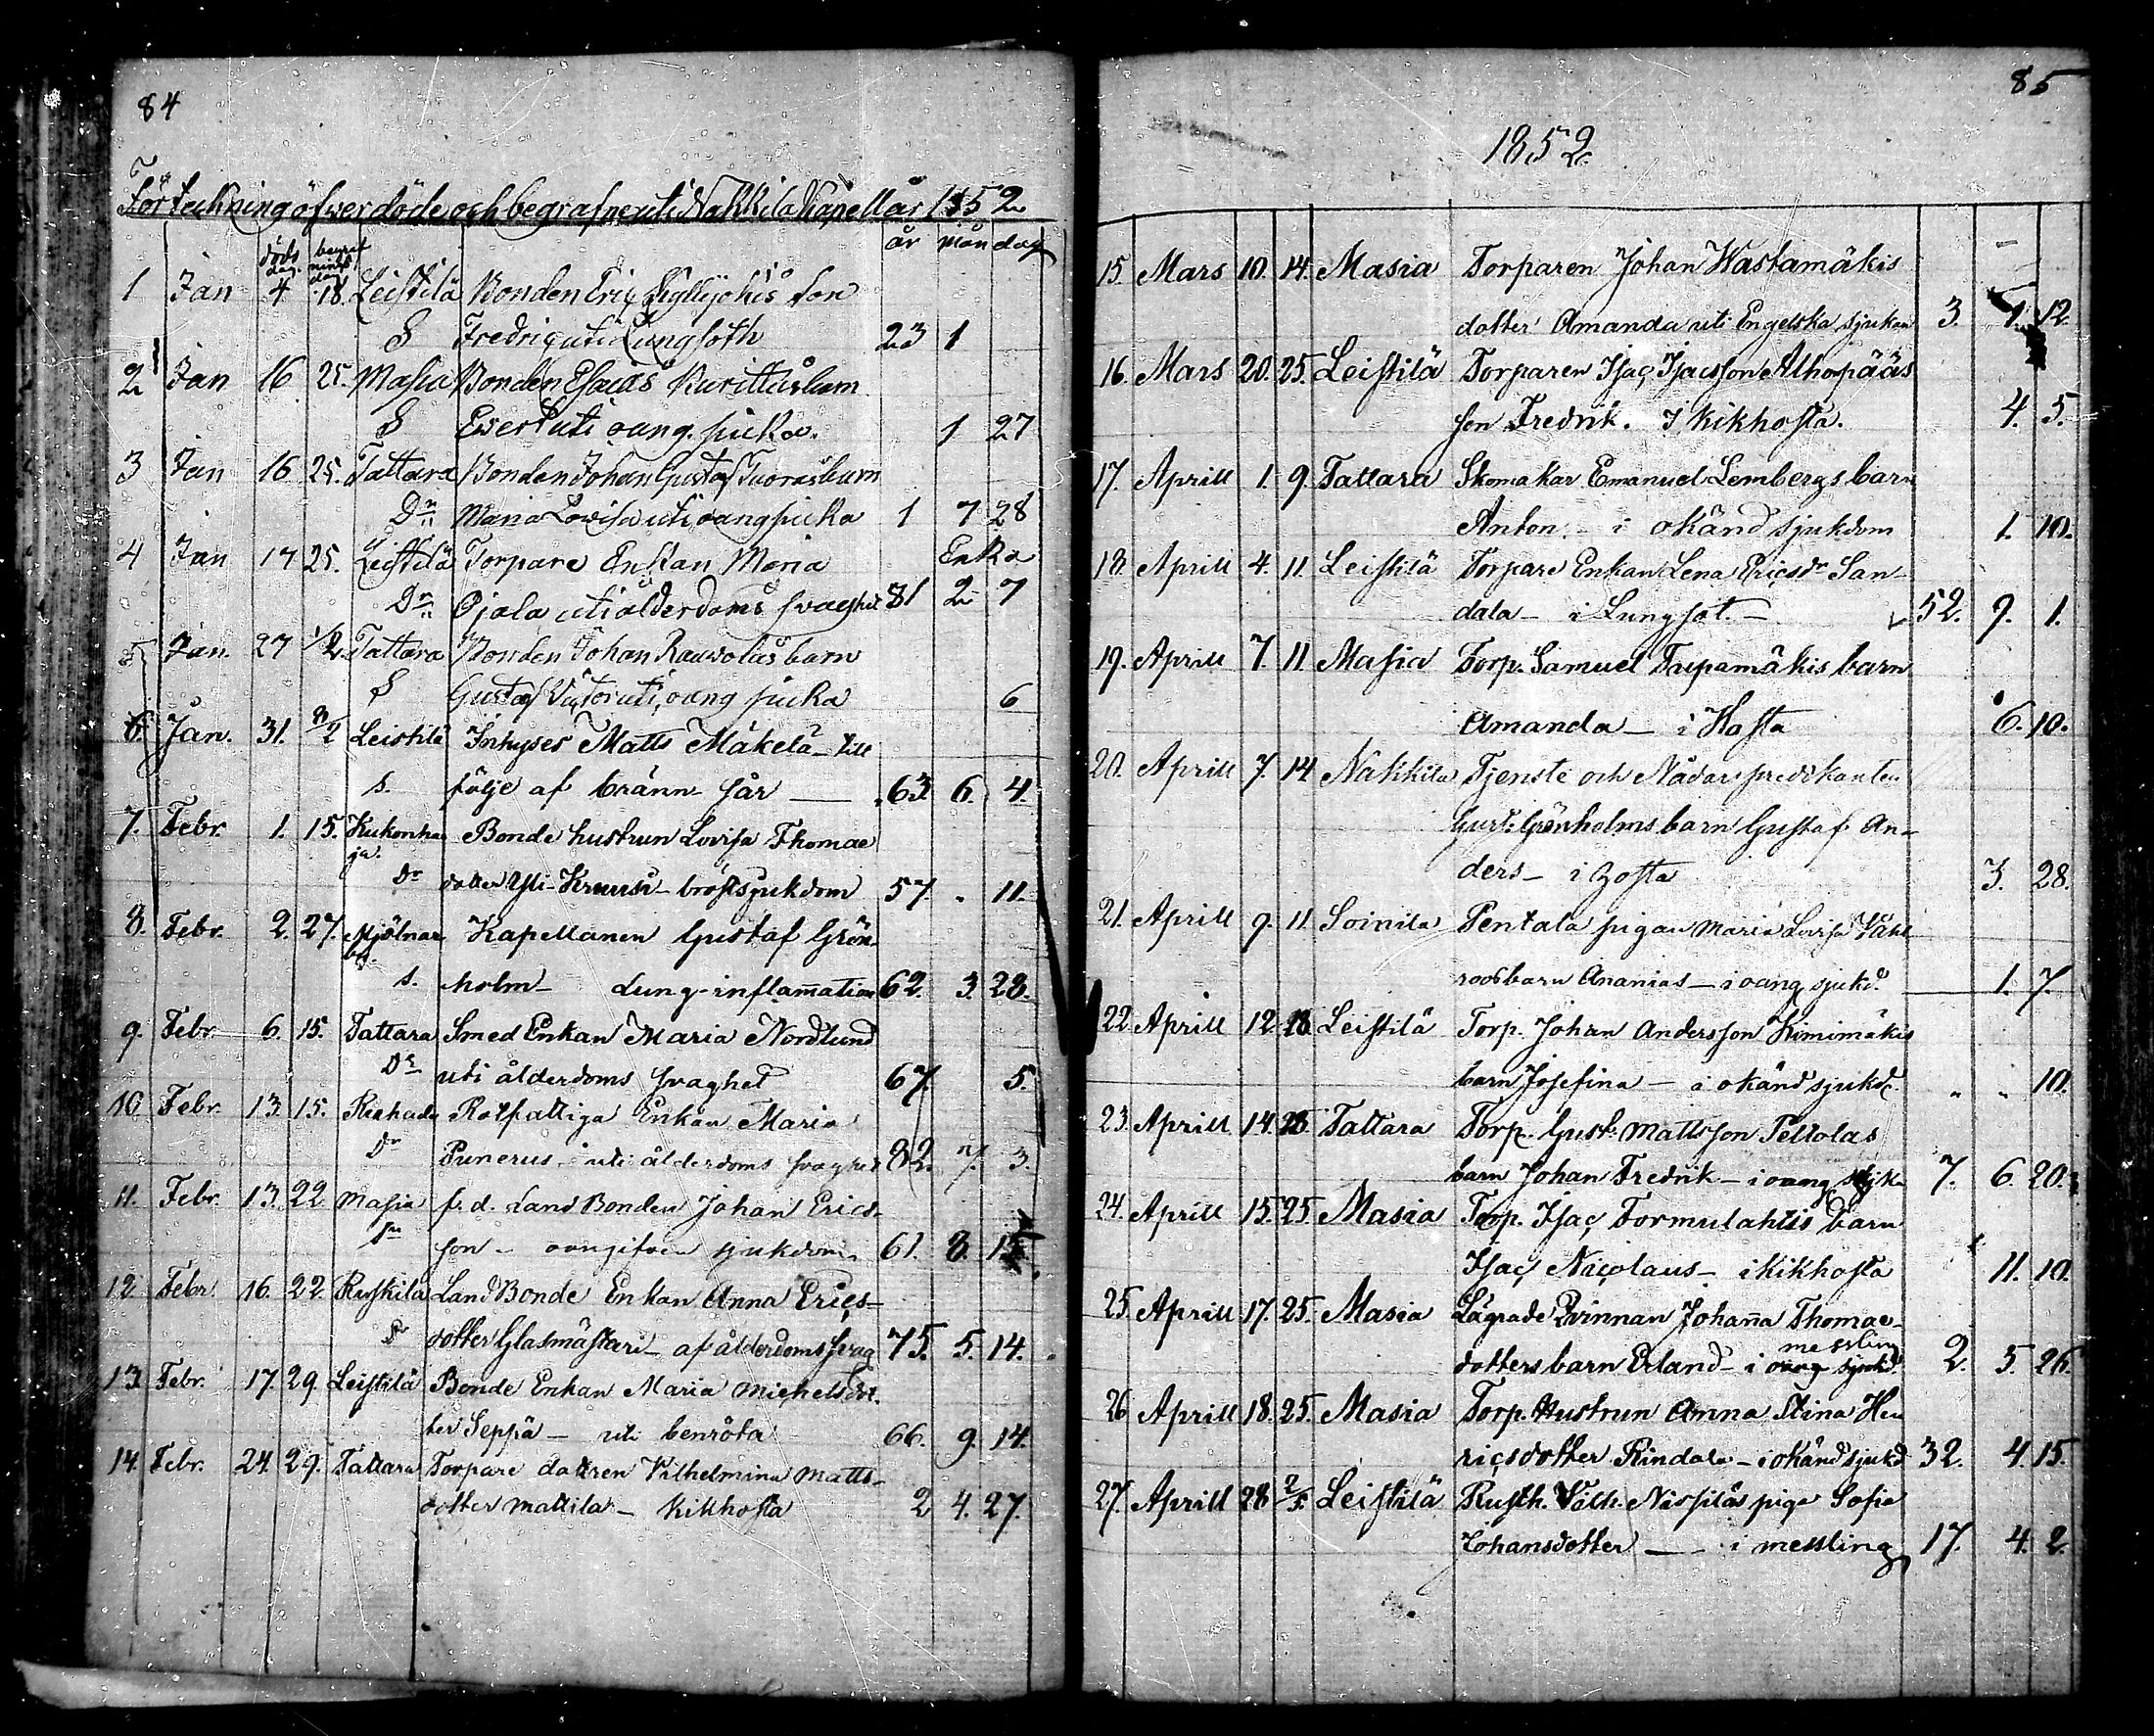 84
Förteckning öfwer döde och begrafne uti Nakkila Kapell år 1852
döds dag. begrafnings dag. år mån dag
1 Jan 4 18. Leistilä Bonden Eric son
S Fredric uti Lungsoth 23 1
2 Jan 16 25. Masia Bonden Esaias Kurittus barn
S Evert uti oang. siuka. 1 27
3 Jan 16 25. Tattara Bonden Johan Gustaf Tuoras barn
Dr Maria Lovisa uti oang siuka 1 7 28
4 Jan 17 25. Leistilä Torpare Enkan Maria Enka
Dr Ojala uti ålderdoms svaghet 81 2 7
5 Jan. 27 1/2. Tattara Bonden Johan Rauvolas barn
S Gustaf Victor uti oang siuka 6
6. Jan. 31. 8/2 Leistilä Inhyses Matts Mäkelä - till
s. följe af bränn sår 63. 6. 4.
7. Febr. 1. 15. Kukonharja. Bonde hustrun Lovisa Thomae
Dr dotter Yli- bröstsjukdom 57. " 11.
8. Febr. 2. 27. Mjölnar Kapellanen Gustaf Grön-
s. holm - Lung-inflamation 62. 3. 28.
9. Febr. 6. 15. Tattara Smed Enkan Maria Nordlund
Dr uti ålderdoms svaghet 67. 5.
10. Febr. 13. 15. Rotfattiga Enkan Maria
Dr Punerus - uti ålderdoms svaghet 82. 7. 3.
11. Febr. 13. 22 Masia f. d. Land Bonden Johan Erics-
son - oangifven sjukdom 61. 8. 15.
12. Febr. 16. 22. Ruskila Land Bonde Enkan Anna Erics-
dotter Glasmästari - af ålderdoms svag 75. 5. 14.
13. Febr. 17. 29. Leistilä Bonde Enkan Maria Michelsdot-
ter Seppä - uti benröta 66. 9. 14.
14. Febr. 24. 29. Tattara Torpare dottren Vilhelmina Matts-
dotter Mattila - Kikhosta 2 4. 27.
85
1852
15. Mars 10. 14. Masia Torparen Johan Wastamäkis
dotter Amanda uti Engelska sjukan 3. 1. 12.
16. Mars 20. 25. Leistilä Torparen Isac Isacsson Alhonpääs
son Fredrik. I Kikhosta. 4. 5.
17. Aprill 1. 9. Tattara Skomakar Emanuel Lembergs barn
Anton. - i okänd sjukdom 1. 10.
18 Aprill 4. 11. Leistilä Torpare Enkan Lena Ericsdr San-
dala - i Lungsot. - 52. 9. 1.
19. Aprill 7. 11. Masia Torp. Samuel Trupamäkis barn
Amanda - i Hosta 6. 10.
20. Aprill 7. 14 Nakkila Tjenste och Nådårspredikanten
Gust. Grönholms barn Gustaf An-
ders - i Hosta 3. 28.
21. Aprill 9. 11. Soinila Pentala pigan Maria Lovisa Wahl
roos barn Ananias - i oang sjukd. 1. 7.
22. Aprill 12. 18. Leistilä Torp. Johan Andersson Kiimimäkis
barn Josefina - i okänd sjukd. " " 10.
23. Aprill 14. 25 Tattara Torp. Gust. Mattsson Peltolas
barn Johan Fredrik - i oang sjuk 7. 6. 20.
24. Aprill 15. 25. Masia Torp. Isac Tormulahtis barn
Isac Nicolaus - i kikhosta 11. 10.
25. Aprill 17. 25. Masia Lägrade Qvinnan Johanna Thomae-
dotters barn Erland - i oang sjukd. messling 2. 5. 26.
26 Aprill 18. 25. Masia Torp. Hustrun Anna Stina Hen
ricsdotter Rindala - i okänd sjukd 32. 4. 15.
27. Aprill 28 2/5. Leistilä Rusth. Wilh. Nissiläs piga Sofia
Johansdotter - i messling 17. 4. 2.